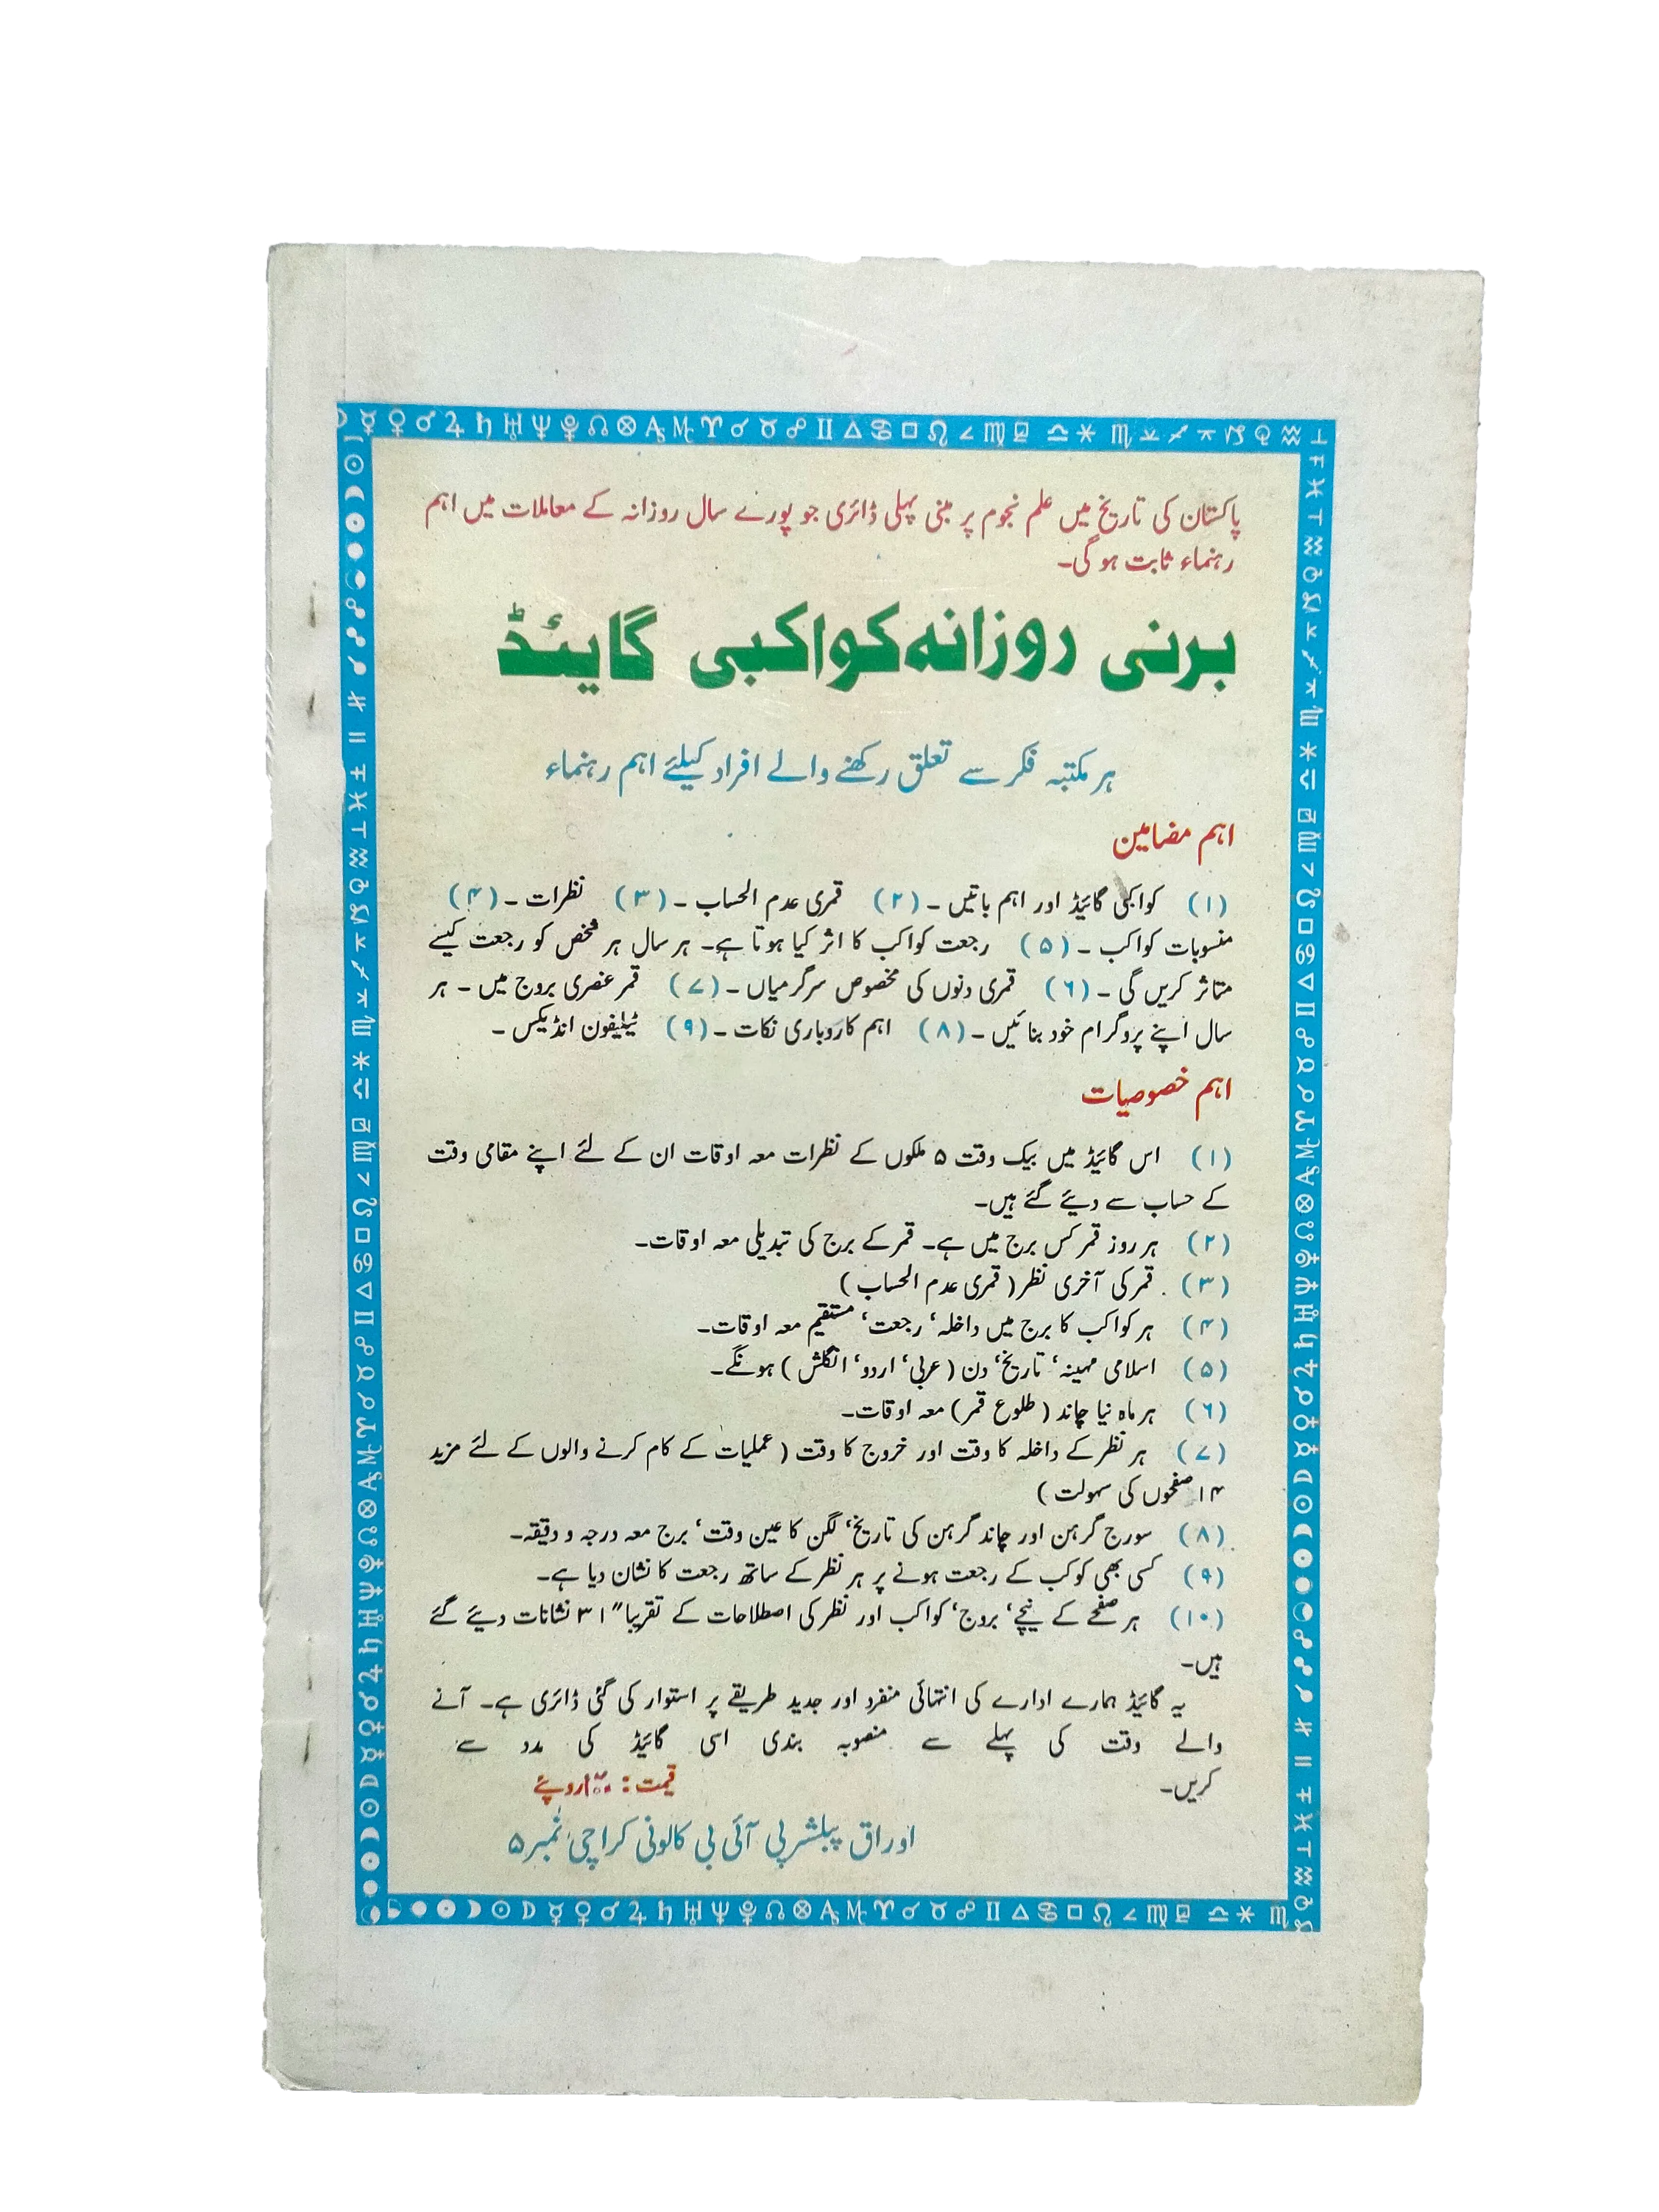 پاکستان کی تاریخ میں علم نجوم پر مبنی پہلی ڈائری جو پورے سال روزانہ کے معاملات میں اہم
رہنماء ثابت ہو گی۔
برنی روزانہ کواکبی گایئڈ
ہر مکتبہ فکر سے تعلق رکھنے والے افراد کیلئے اہم رہنماء
اہم مضامین
(۱) کواکبی گائیڈ اور اہم باتیں ۔ (۲) قمری عدم الحساب ۔ (۳) نظرات ۔ (۴)
منسوبات کواکب ۔ (۵) رجعت کواکب کا اثر کیا ہوتا ہے۔ ہر سال ہر شخص کو رجعت کیسے
متاثر کریں گی ۔ (۶) قمری دنوں کی مخصوص سرگرمیاں ۔ (۷) قمر عنصری بروج میں ۔ ہر
سال اپنے پروگرام خود بنائیں ۔ (۸) اہم کاروباری نکات ۔ (۹) ٹیلیفون انڈیکس ۔
اہم خصوصیات
(۱) اس گائیڈ میں بیک وقت ۵ ملکوں کے نظرات معہ اوقات ان کے لئے اپنے مقامی وقت
کے حساب سے دیئے گئے ہیں۔
(۲) ہر روز قمر کس برج میں ہے۔ قمر کے برج کی تبدیلی معہ اوقات۔
(۳) قمر کی آخری نظر (قمری عدم الحساب)
(۴) ہر کواکب کا برج میں داخلہ، رجعت، مستقیم معہ اوقات۔
(۵) اسلامی مہینہ، تاریخ، دن (عربی، اردو، انگلش) ہونگے۔
(۶) ہر ماہ نیا چاند (طلوع قمر) معہ اوقات۔
(۷) ہر نظر کے داخلہ کا وقت اور خروج کا وقت (عملیات کے کام کرنے والوں کے لئے مزید
۱۴ صفحوں کی سہولت)
(۸) سورج گرہن اور چاند گرہن کی تاریخ، لگن کا عین وقت، برج معہ درجہ و دقیقہ۔
(۹) کسی بھی کوکب کے رجعت ہونے پر ہر نظر کے ساتھ رجعت کا نشان دیا ہے۔
(۱۰) ہر صفحے کے نیچے، بروج، کواکب اور نظر کی اصطلاحات کے تقریبا" ۳۱ نشانات دیئے گئے
ہیں۔
یہ گائیڈ ہمارے ادارے کی انتہائی منفرد اور جدید طریقے پر استوار کی گئی ڈائری ہے۔ آنے
والے وقت کی پہلے سے منصوبہ بندی اسی گائیڈ کی مدد سے
کریں۔
قیمت : روپے
اوراق پبلشر پی آئی بی کالونی کراچی نمبر ۵